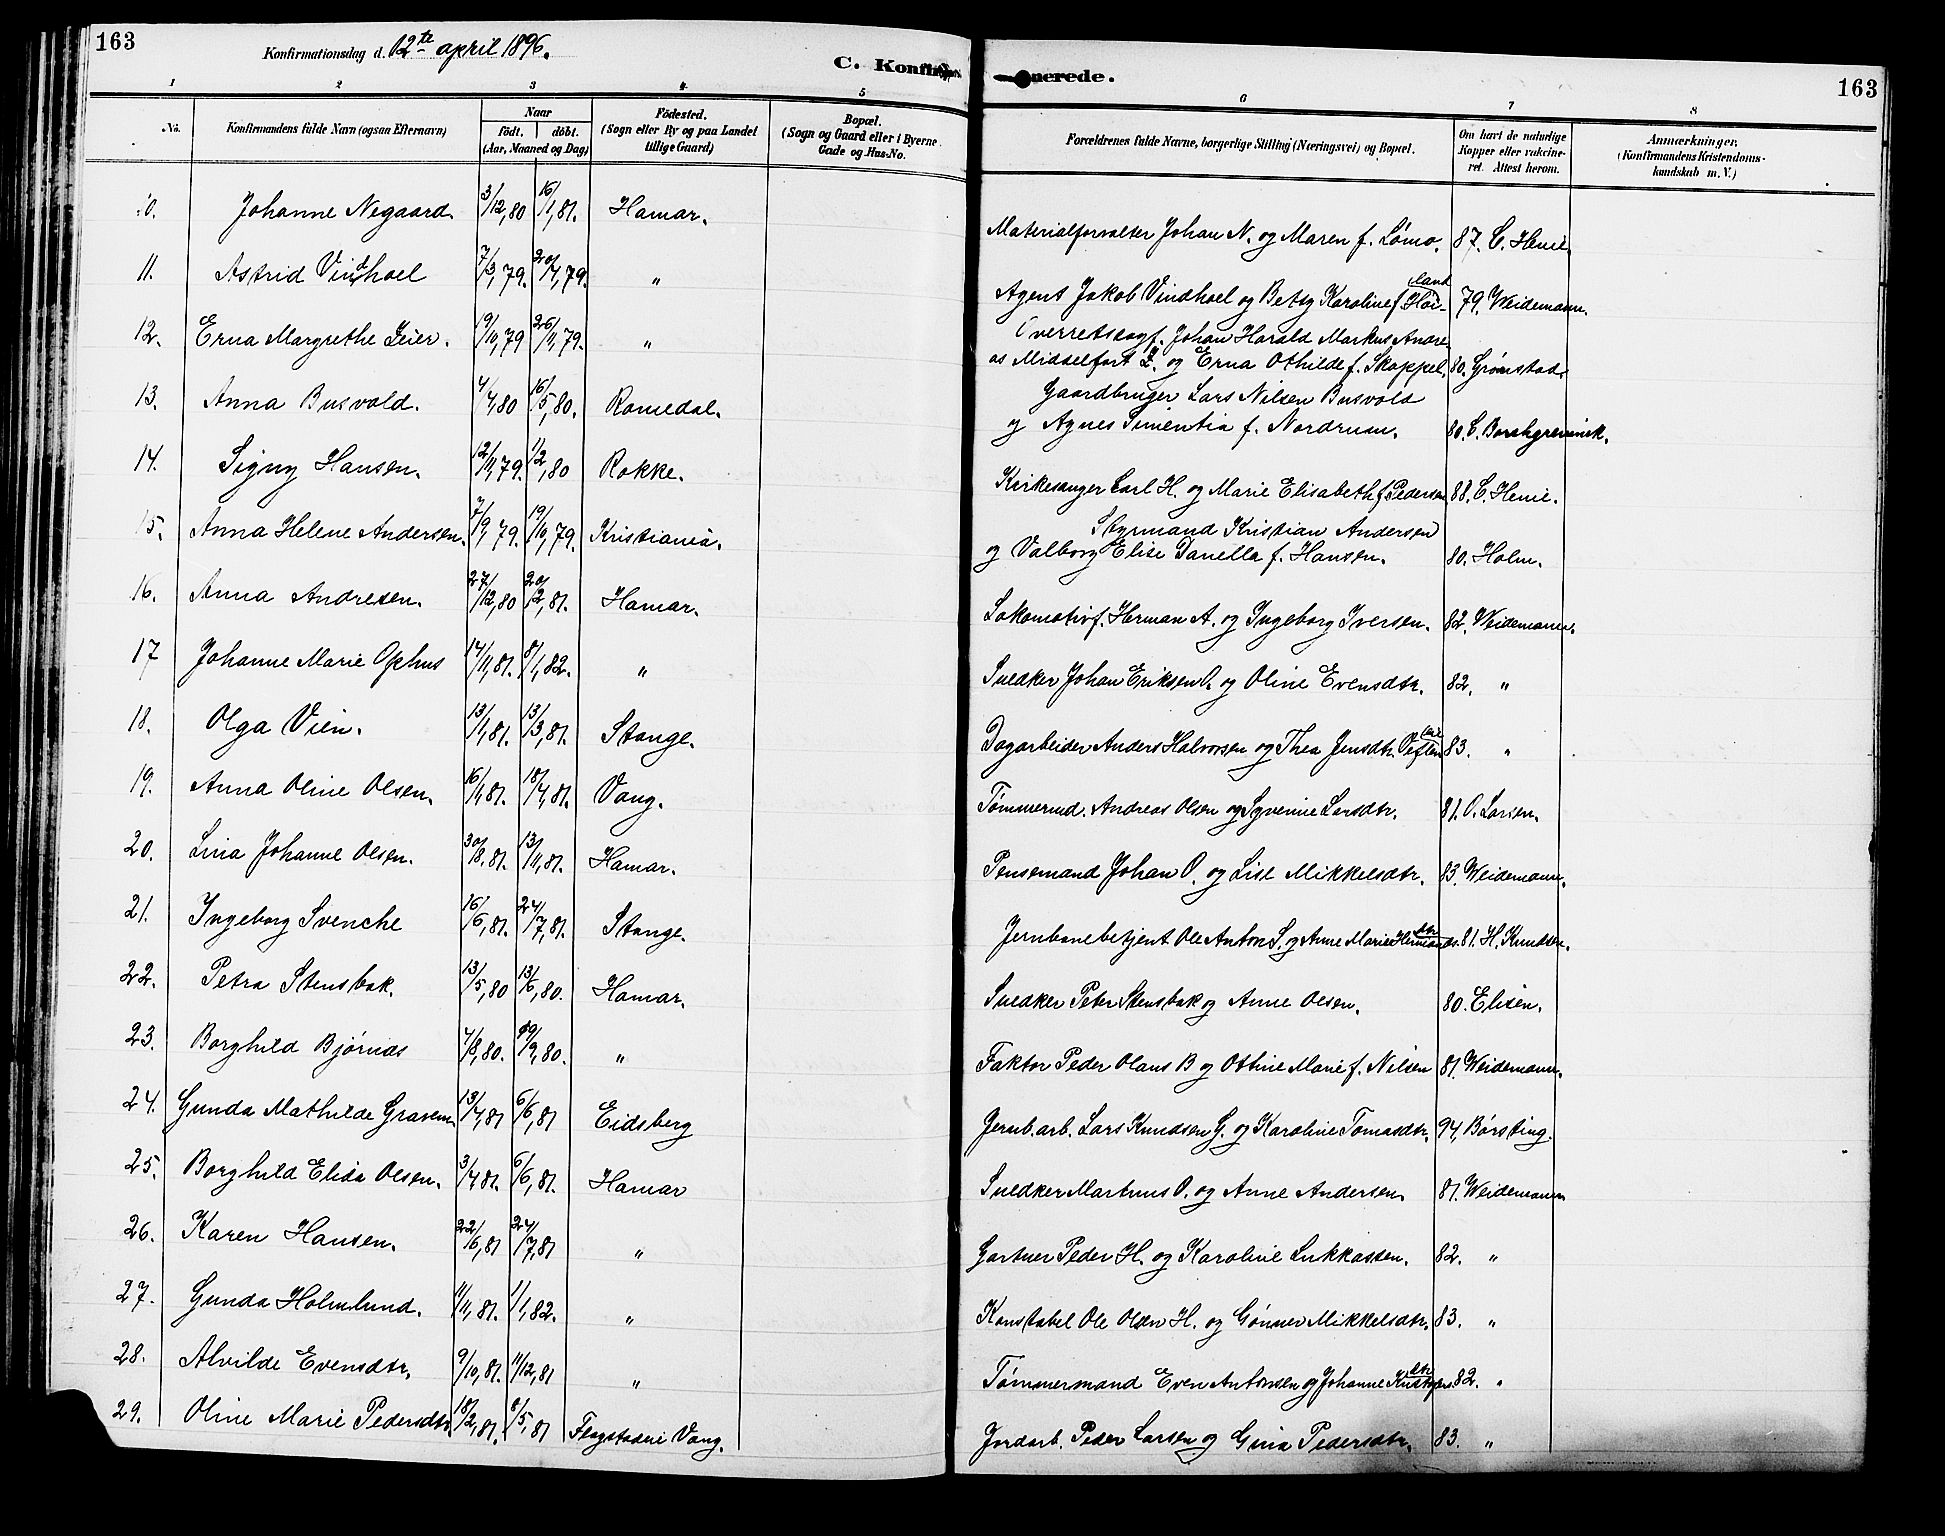 163
Konfirmationsdag d. 12te april 1896.
C. Konfirmerede.
163
1 2 3 4 5 6 7 8
No.
Konfirmandens fulde Navn (ogsaa Efternavn)
Naar
födt. döbt.
(Aar, Maaned og Dag)
Födested.
(Sogn eller By og paa Landet
tillige Gaard)
Bopæl.
(Sogn og Gaard eller i Byerne
Gade og Hus-No.
Forældrenes fulde Navne, borgerlige Stilling (Næringsvei) og Bopæl.
Om havt de naturlige
Kopper eller vakcine-
ret. Attest herom.
Anmærkninger,
(Konfirmandens Kristendoms-
kundskab m. V.)
10. Johanne Negaard. 3/12,80 16/1,81. Hamar. Materialforvalter Johan N. og Maren f. Lömo. 87. C. Henie.
11. Astrid Vindhoel 7/3,79. 20/4,79. " Agent Jakob Vindhoel og Betzy Karoline f. Höiland 79. Weidemann.
12. Erna Margrethe Zeier. 9/10,79 26/11,79. " Overretssagf. Johan Harald Markus Andre-
as Middelfart Z. og Erna Othilde f. Skappel. 80. Grönstad.
13. Anna Busvold. 4/4,80 16/5,80. Romedal. Gaardbruger Lars Nilsen Busvold
og Agnes Simentia f. Nordrum. 80. C. Borchgrevinck.
14. Signy Hansen. 12/11,79. 1/2,80 Rokke. Kirkesanger Carl H. og Marie Elisabeth f. Pedersen 88. C. Henie.
15. Anna Helene Andersen. 7/9,79. 19/10,79. Kristiania. Styrmand Kristian Andersen
og Valborg Elise Danella f. Hansen. 80. Holm.
16. Anna Andresen. 27/12,80 20/2,81. Hamar. Lokomotivf. Herman A. og Ingeborg Iversen. 82. Weidemann.
17 Johanne Marie Ophus 14/11,81. 8/1,82. " Snedker Johan Eriksen O. og Oline Evensdtr. 82. "
18. Olga Vien. 13/1,81. 13/3,81. Stange. Dagarbeider Anders Halvorsen og Thea Jensdtr. 83. "
19. Anna Oline Olsen. 16/1,81. 18/4,81. Vang. Tömmermd. Andreas Olsen og Syverine Larsdtr. 81. O. Larsen.
20. Lina Johanne Olsen. 30/8.81. 13/11,81. Hamar. Pensemand Johan O. og Lise Mikkelsdtr. 83. Weidemann.
21. Ingeborg Svenche 16/6,81. 24/7,81. Stange. Jernbanebetjent Ole Anton S. og Anne Marie 81. H. Knudsen.
22. Petra Stensbak. 13/5,80 13/6,80. Hamar. Snedker Peter Stensbak og Anne Olsen. 80. Elisen.
23. Borghild Björnås 4/8,80. 19/9,80. " Faktor Peder Olaus B og Ottine Marie f. Nilsen 81. Weidemann.
24. Gunda Mathilde Graven 13/4,81 6/6,81 Eidsberg Jernb.arb. Lars Knudsen G. og Karoline Tomasdtr. 94, Börsting.
25. Borghild Elida Olsen. 3/4,81. 6/6,81. Hamar Snedker Martinus O. og Anne Andersen. 81. Weidemann
26. Karen Hansen. 22/6,81 24/7,81 " Gartner Peder H. og Karoline Lukkassen. 82. "
27. Gunda Holmlund. 11/11,81. 1/1,82. " Konstabel Ole Olsen H. og Gönner Mikkelsdtr. 83. "
28. Alvilde Evensdtr. 9/10,81. 11/12,81 " Tömmermand Even Antonsen og Johanne Kristofersdtr 82. "
29. Oline Marie Pedersdtr 18/2,81. 8/5,81 Flagstadeie Vang. Jordarb. Peder Larsen og Gina Pedersdtr. 83. "